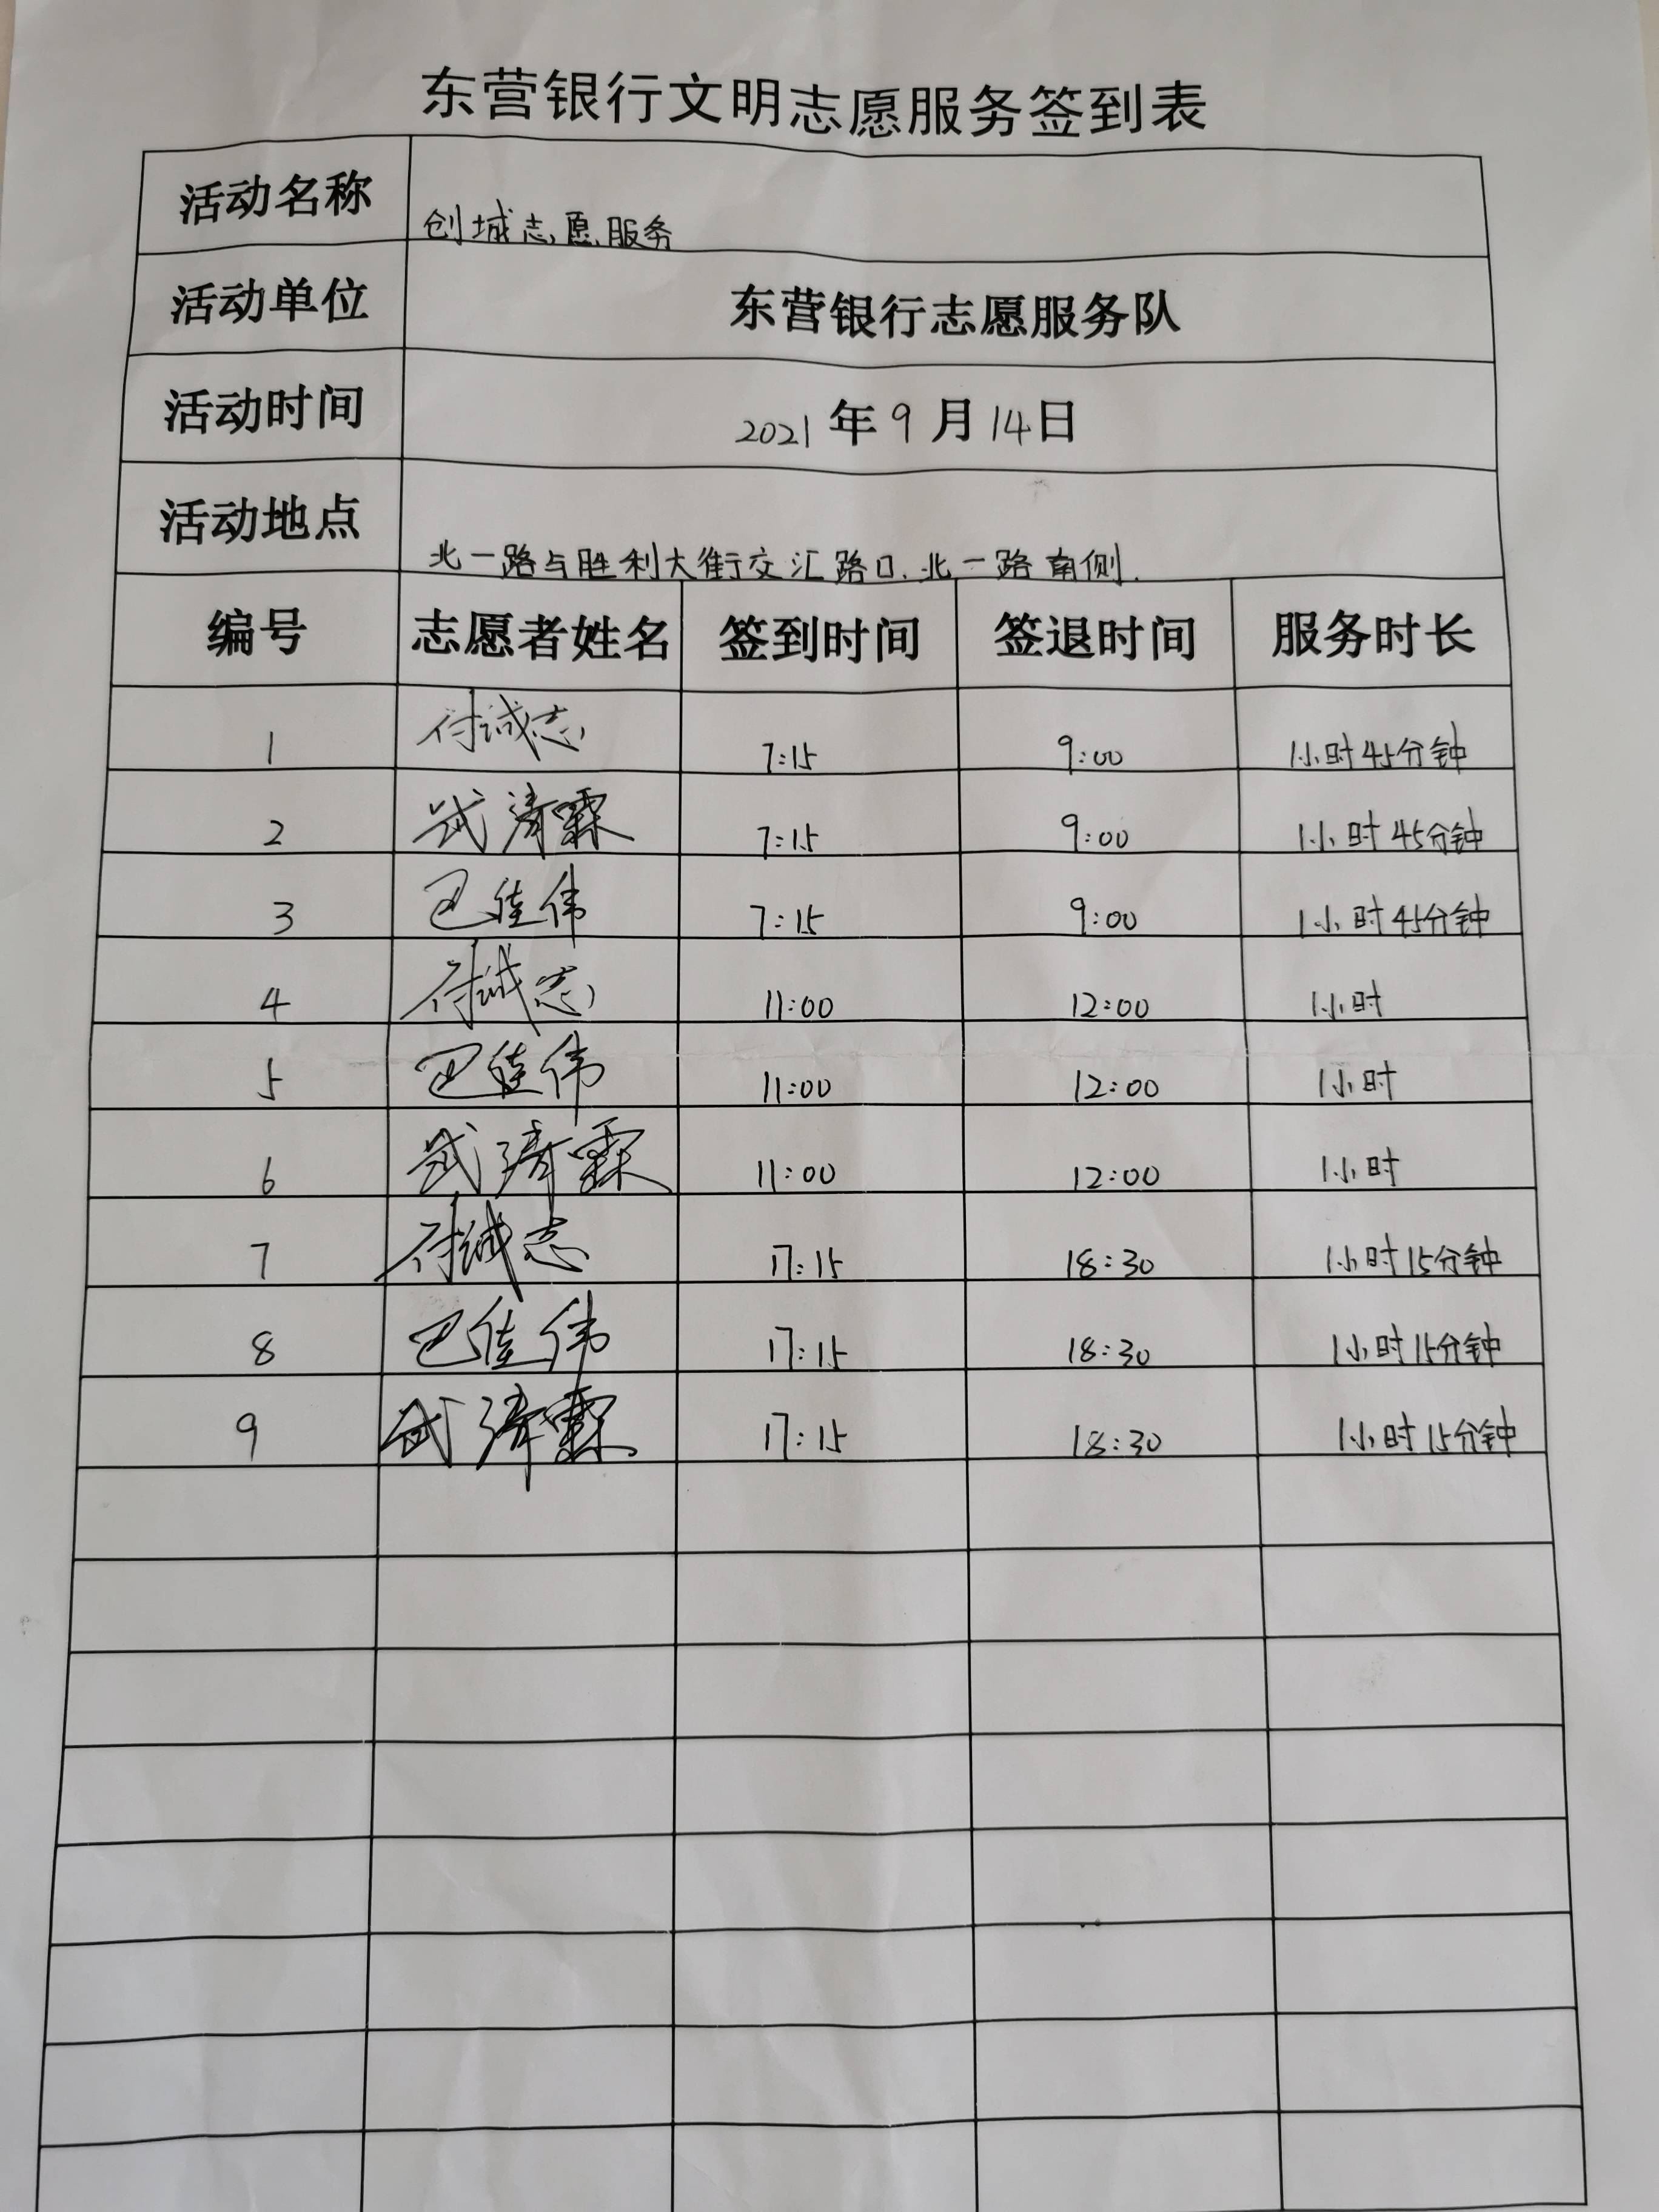 东营银行文明志愿服务签到表
活动名称 创城志愿服务
活动单位 东营银行志愿服务队
活动时间 2021年9月14日
活动地点 北一路与胜利大街交汇路口.北一路南侧.
编号 志愿者姓名 签到时间 签退时间 服务时长
1 付诚志 7:15 9:00 1小时45分钟
2 武清霖 7:15 9:00 1小时45分钟
3 巴佳伟 7:15 9:00 1小时45分钟
4 付诚志 11:00 12:00 1小时
5 巴佳伟 11:00 12:00 1小时
6 武清霖 11:00 12:00 1小时
7 付诚志 17:15 18:30 1小时15分钟
8 巴佳伟 17:15 18:30 1小时15分钟
9 武清霖 17:15 18:30 1小时15分钟